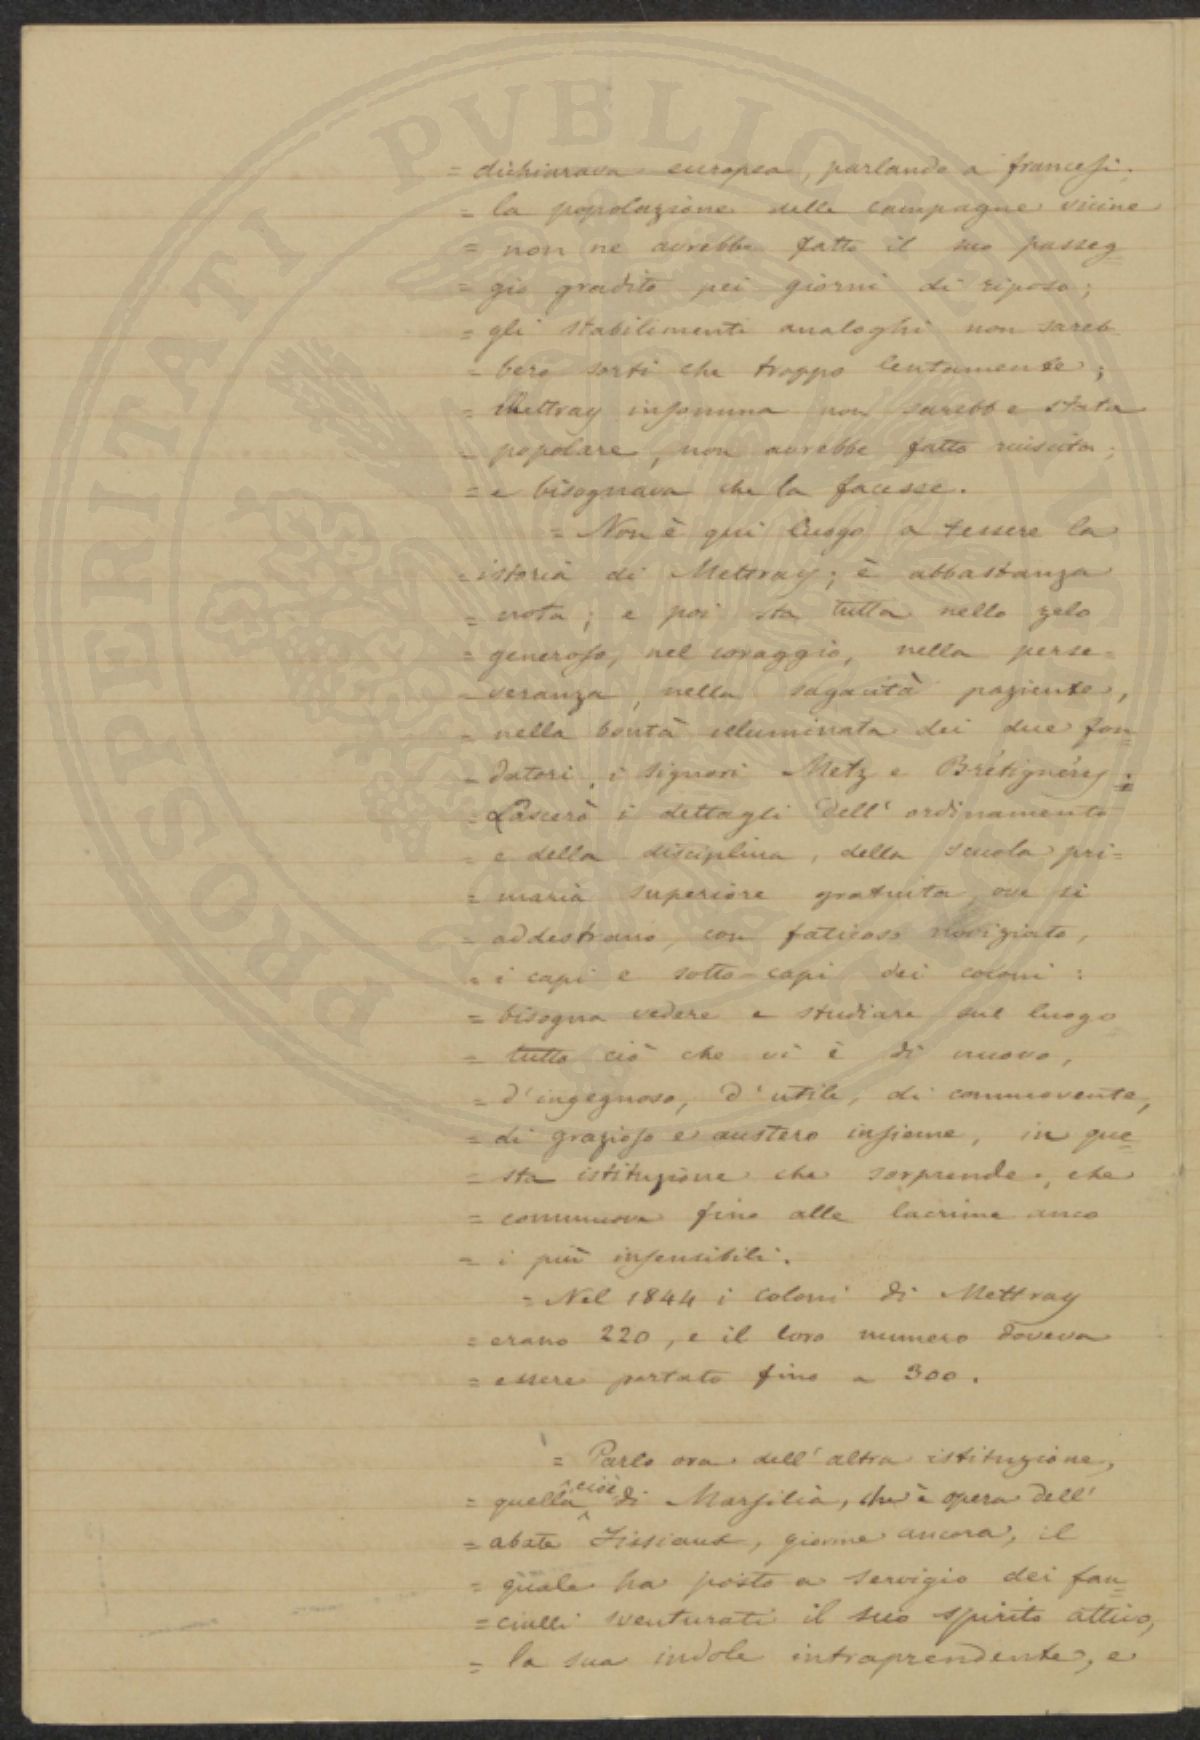 = dichiarava europea, parlando a francesi.
= la popolazione delle campagne vicine
= non ne avrebbe fatto il suo passeg=
= gio gradito pei giorni di riposo;
= gli stabilimenti analoghi non sareb
= bero sorti che troppo lentamente;
= Mettray insomma non sarebbe stata
= popolare, non avrebbe fatto riuscita;
= e bisognava che la facesse.
= Non è qui luogo a tessere la
= istoria di Mettray; è abbastanza
= nota; e poi sta tutta nello zelo
= generoso, nel coraggio, nella perse=
= veranza, nella sagacità paziente,
= nella bontà illuminata dei due fon=
= datori, i signori Metz e Brétignéres.
= Lascerò i dettagli dell' ordinamento
= e della disciplina, della scuola pri=
= maria superiore gratuita ove si
= addestrano, con faticoso noviziato,
= i capi e sotto-capi dei coloni:
= bisogna vedere e studiare sul luogo
= tutto ciò che vi è di nuovo,
= d'ingegnoso, d'utile, di commovente,
= di grazioso e austero insieme, in que=
= sta istituzione che sorprende, che
= commuove fino alle lacrime anco
= i più insensibili.
= Nel 1844 i coloni di Mettray
= erano 220, e il loro numero doveva
= essere portato fino a 300.
= Parlo ora dell' altra istituzione,
= quella cioè di Marsilia, che è opera dell'
= abate Fissiaux, giovine ancora, il
= quale ha posto a servigio dei fan=
= ciulli sventurati il suo spirito attivo,
= la sua indole intraprendente, e
PROSPERITATI PVBLICAE